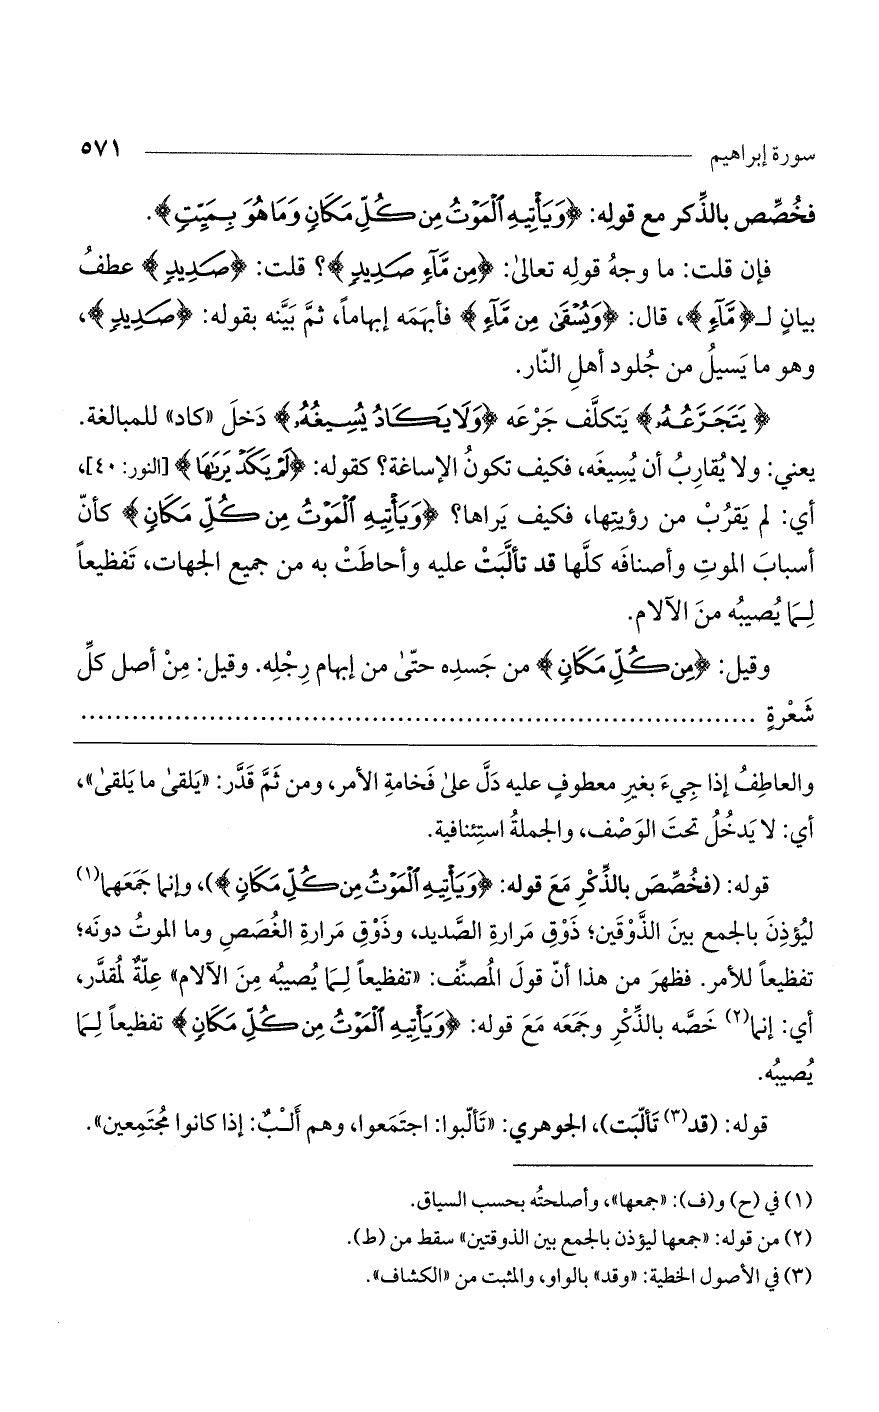 سورة إبراهيم ٥٧١
فخُصِّص بالذِّكر مع قولِه: ﴿وَيَأْتِيهِ الْمَوْتُ مِن كُلِّ مَكَانٍ وَمَا هُوَ بِمَيِّتٍ﴾.
فإن قلت: ما وجهُ قولِه تعالىٰ: ﴿مِن مَّآءٍ صَدِيدٍ﴾؟ قلت: ﴿صَدِيدٍ﴾ عطفُ
بيانٍ لـ﴿مَّآءٍ﴾، قال: ﴿وَيُسْقَىٰ مِن مَّآءٍ﴾ فأبهَمَه إبهاماً، ثمَّ بَيَّنه بقوله: ﴿صَدِيدٍ﴾،
وهو ما يَسيلُ من جُلود أهلِ النّار.
﴿يَتَجَرَّعُهُۥ﴾ يَتكلَّف جَرْعَه ﴿وَلَا يَكَادُ يُسِيغُهُۥ﴾ دَخلَ «كاد» للمبالغة.
يعني: ولا يُقارِبُ أن يُسِيغَه، فكيف تكونُ الإساغة؟ كقوله: ﴿لَمْ يَكَدْ يَرَىٰهَا﴾ [النور: ٤٠]،
أي: لم يَقرُبْ من رؤيتِها، فكيف يَراها؟ ﴿وَيَأْتِيهِ الْمَوْتُ مِن كُلِّ مَكَانٍ﴾ كأنّ
أسبابَ الموتِ وأصنافَه كلَّها قد تألَّبَتْ عليه وأحاطَتْ به من جميع الجهات، تَفظيعاً
لِمَا يُصيبُه منَ الآلام.
وقيل: ﴿مِن كُلِّ مَكَانٍ﴾ من جَسدِه حتّىٰ من إبهام رِجْلِه. وقيل: مِنْ أصل كلِّ
شَعْرةٍ ................................................................................
والعاطِفُ إذا جِيءَ بغيرِ معطوفٍ عليه دَلَّ علىٰ فَخامةِ الأمر، ومن ثَمَّ قَدَّر: «يَلقىٰ ما يَلقىٰ»،
أي: لا يَدخُلُ تحتَ الوَصْف، والجملةُ استِئنافية.
قوله: (فخُصِّصَ بالذِّكْرِ مَعَ قوله: ﴿وَيَأْتِيهِ الْمَوْتُ مِن كُلِّ مَكَانٍ﴾)، وإنما جَمَعَهما(١)
ليُؤذِنَ بالجمع بينَ الذَّوْقَين؛ ذَوْقِ مَرارةِ الصَّديد، وذَوْقِ مَرارةِ الغُصَصِ وما الموتُ دونَه؛
تفظيعاً للأمر. فظهرَ من هذا أنّ قولَ المُصنِّف: «تفظيعاً لِمَا يُصيبُه مِنَ الآلام» عِلّةٌ لمُقدَّر،
أي: إنما(٢) خَصَّه بالذِّكْرِ وجمَعَه مَعَ قوله: ﴿وَيَأْتِيهِ الْمَوْتُ مِن كُلِّ مَكَانٍ﴾ تفظيعاً لِمَا
يُصيبُه.
قوله: (قد(٣) تألّبَت)، الجوهري: «تَألّبوا: اجتَمَعوا، وهم أَلْبٌ: إذا كانوا مُجتَمِعين».
(١) في (ح) و(ف): «جمعها»، وأصلحتُه بحسب السياق.
(٢) من قوله: «جمعها ليؤذن بالجمع بين الذوقتين» سقط من (ط).
(٣) في الأصول الخطية: «وقد» بالواو، والمثبت من «الكشاف».